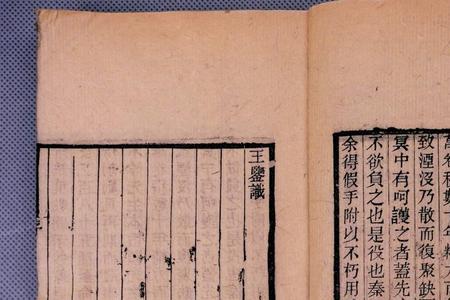 年精力而
致湮沒乃散而復聚缺
冥中有呵護之者蓋先
不欲負之也是役也秦
余得假手附以不朽用
王鑒識